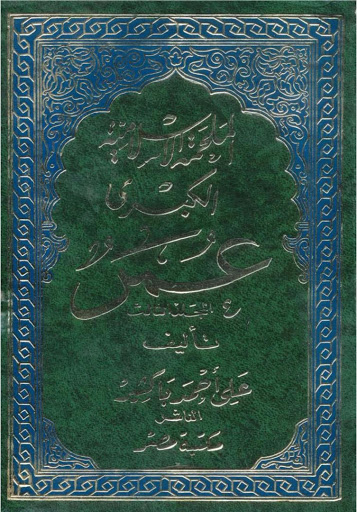 الملحمة الإسلامية
الكبرى
عمر
المجلد الثالث
تأليف
علي أحمد باكثير
الناشر
مكتبة مصر